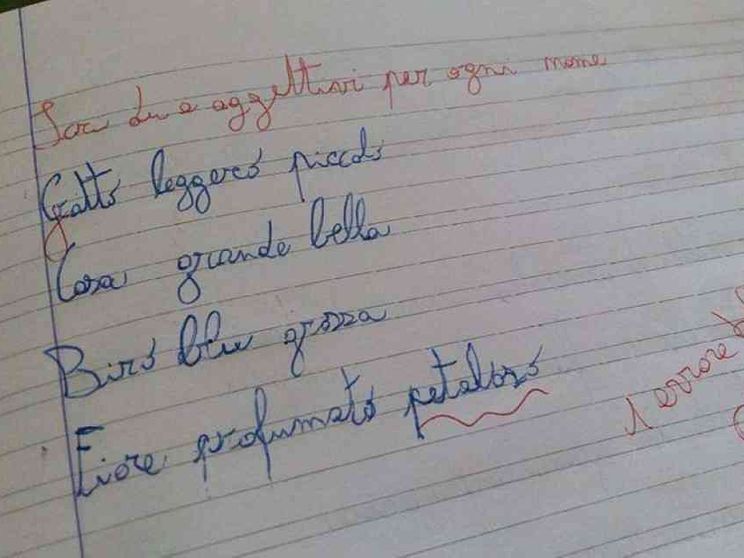 due aggettivi per ogni nome
Gatto leggero piccolo
Casa grande bella
Biro blu grossa
Fiore profumato petaloso
1 errore